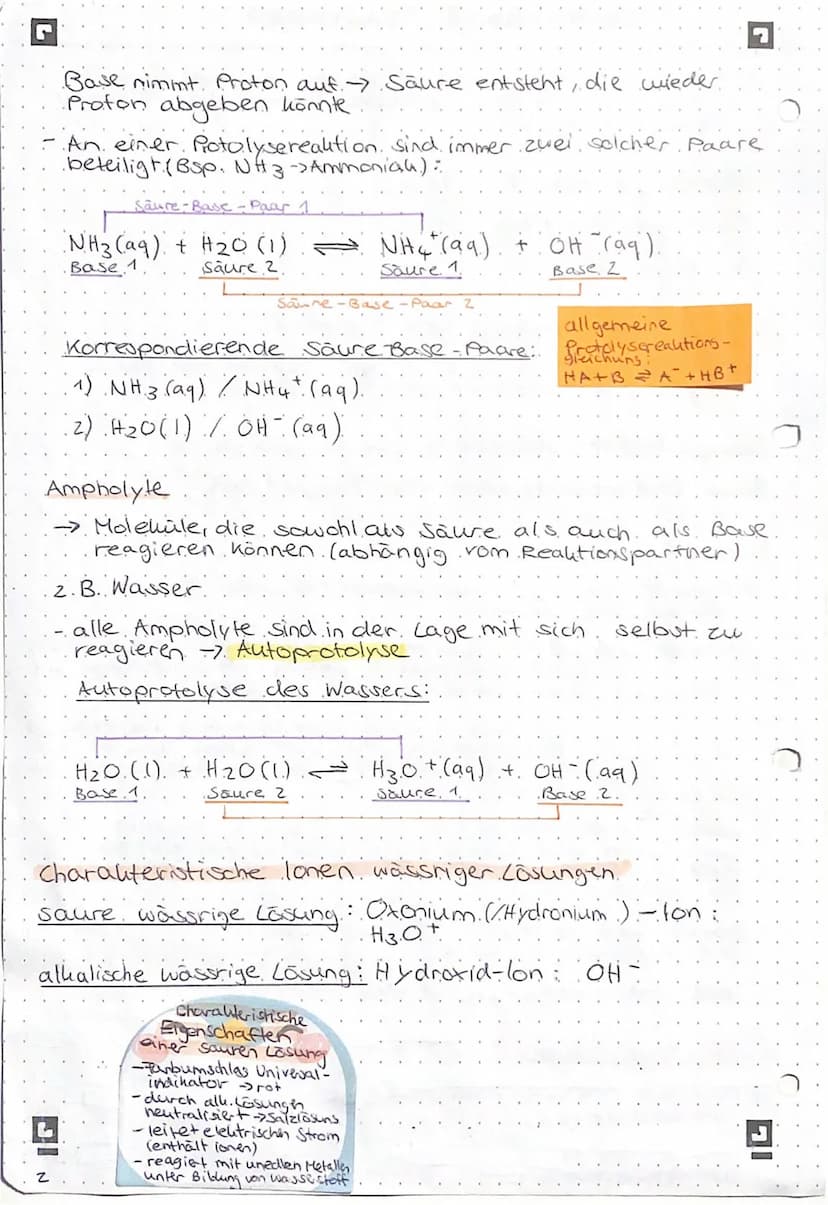 Base nimmt Proton auf → Säure entsteht, die wieder
Proton abgeben könnte
- An einer Potolysereaktion sind immer zwei solcher Paare
beteiligt (Bsp. NH3 → Ammoniak):
Säure-Base-Paar 1
NH3 (aq) + H2O (l) ⇌ NH4+ (aq) + OH- (aq)
Base 1 Säure 2 Säure 1 Base 2
Säure-Base-Paar 2
allgemeine
Protolysereaktions-
gleichung:
HA + B ⇌ A- + HB+
Korrespondierende Säure-Base-Paare:
1) NH3 (aq) / NH4+ (aq)
2) H2O (l) / OH- (aq)
Ampholyte
→ Moleküle, die sowohl als Säure als auch als Base
reagieren können (abhängig vom Reaktionspartner)
z.B. Wasser
- alle Ampholyte sind in der Lage mit sich selbst zu
reagieren → Autoprotolyse
Autoprotolyse des Wassers:
H2O (l) + H2O (l) ⇌ H3O+ (aq) + OH- (aq)
Base 1 Säure 2 Säure 1 Base 2
Charakteristische Ionen wässriger Lösungen
saure wässrige Lösung: Oxonium (/Hydronium) - Ion:
H3O+
alkalische wässrige Lösung: Hydroxid-Ion: OH-
Charakteristische
Eigenschaften
einer sauren Lösung
- Farbumschlag Universal-
indikator → rot
- durch alk. Lösungen
neutralisiert → Salzlösung
- leitet elektrischen Strom
(enthält Ionen)
- reagiert mit unedlen Metallen
unter Bildung von Wasserstoff
2